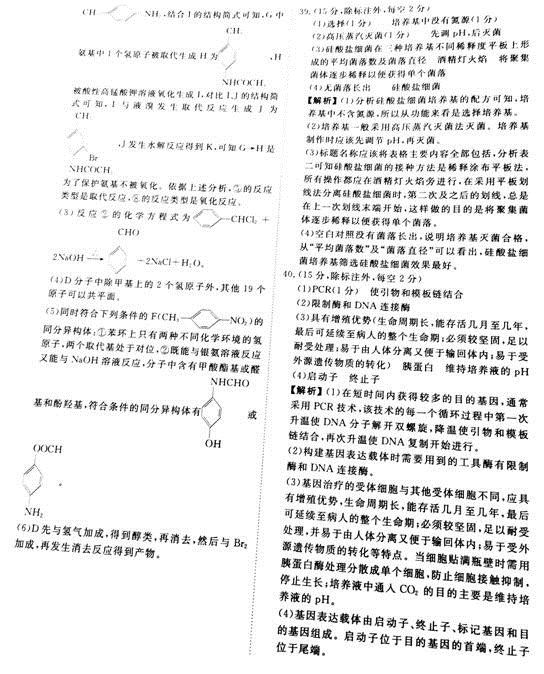 CH₃ NH₂,结合I的结构简式可知,G中
CH₃
氨基中1个氢原子被取代生成H为 ,H
NHCOCH₃
被酸性高锰酸钾溶液氧化生成I,对比I、J的结构简
式可知,I与液溴发生取代反应生成J为
CH₃
,J发生水解反应得到K,可知G→H是
Br
NHCOCH₃
为了保护氨基不被氧化。依据上述分析,⑤的反应
类型是取代反应,⑧的反应类型是氧化反应。
(3)反应②的化学方程式为 CHCl₂+
CHO
2NaOH +2NaCl+H₂O。
(4)D分子中除甲基上的2个氢原子外,其他19个
原子可以共平面。
(5)同时符合下列条件的F(CH₃ NO₂)的
同分异构体:①苯环上只有两种不同化学环境的氢
原子,两个取代基处于对位,②既能与银氨溶液反应
又能与NaOH溶液反应,分子中含有甲酸酯基或醛
NHCHO
基和酚羟基,符合条件的同分异构体有 或
OH
OOCH
。
NH₂
(6)D先与氢气加成,得到醇类,再消去,然后与Br₂
加成,再发生消去反应得到产物。
39.(15分,除标注外,每空2分)
(1)选择(1分) 培养基中没有氮源(1分)
(2)高压蒸汽灭菌(1分) 先调pH,后灭菌
(3)硅酸盐细菌在三种培养基不同稀释度平板上形
成的平均菌落数及菌落直径 酒精灯火焰 将聚集
菌体逐步稀释以便获得单个菌落
(4)无菌落长出 硅酸盐细菌
【解析】(1)分析硅酸盐细菌培养基的配方可知,培
养基中不含氮源,所以从功能来看是选择培养基。
(2)培养基一般采用高压蒸汽灭菌法灭菌。培养基
制作时应该先调节pH,再灭菌。
(3)标题名称应该将表格主要内容全部包括,分析表
二可知硅酸盐细菌的接种方法是稀释涂布平板法,
所有操作都应在酒精灯火焰旁进行,在采用平板划
线法分离硅酸盐细菌时,第二次及之后的划线,总是
在上一次划线末端开始,这样做的目的是将聚集菌
体逐步稀释以便获得单个菌落。
(4)空白对照没有菌落长出,说明培养基灭菌合格,
从“平均菌落数”及“菌落直径”可以看出,硅酸盐细
菌培养基筛选硅酸盐细菌效果最好。
40.(15分,除标注外,每空2分)
(1)PCR(1分) 使引物和模板链结合
(2)限制酶和DNA连接酶
(3)具有增殖优势(生命周期长,能存活几月至几年,
最后可延续至病人的整个生命期;必须较坚固,足以
耐受处理;易于由人体分离又便于输回体内;易于受
外源遗传物质的转化) 胰蛋白 维持培养液的pH
(4)启动子 终止子
【解析】(1)在短时间内获得较多的目的基因,通常
采用PCR技术,该技术的每一个循环过程中第一次
升温使DNA分子解开双螺旋,降温使引物和模板
链结合,再次升温使DNA复制开始进行。
(2)构建基因表达载体时需要用到的工具酶有限制
酶和DNA连接酶。
(3)基因治疗的受体细胞与其他受体细胞不同,应具
有增殖优势,生命周期长,能存活几月至几年,最后
可延续至病人的整个生命期;必须较坚固,足以耐受
处理,并易于由人体分离又便于输回体内;易于受外
源遗传物质的转化等特点。当细胞贴满瓶壁时需用
胰蛋白酶处理分散成单个细胞,防止细胞接触抑制,
停止生长;培养液中通入CO₂的目的主要是维持培
养液的pH。
(4)基因表达载体由启动子、终止子、标记基因和目
的基因组成。启动子位于目的基因的首端,终止子
位于尾端。